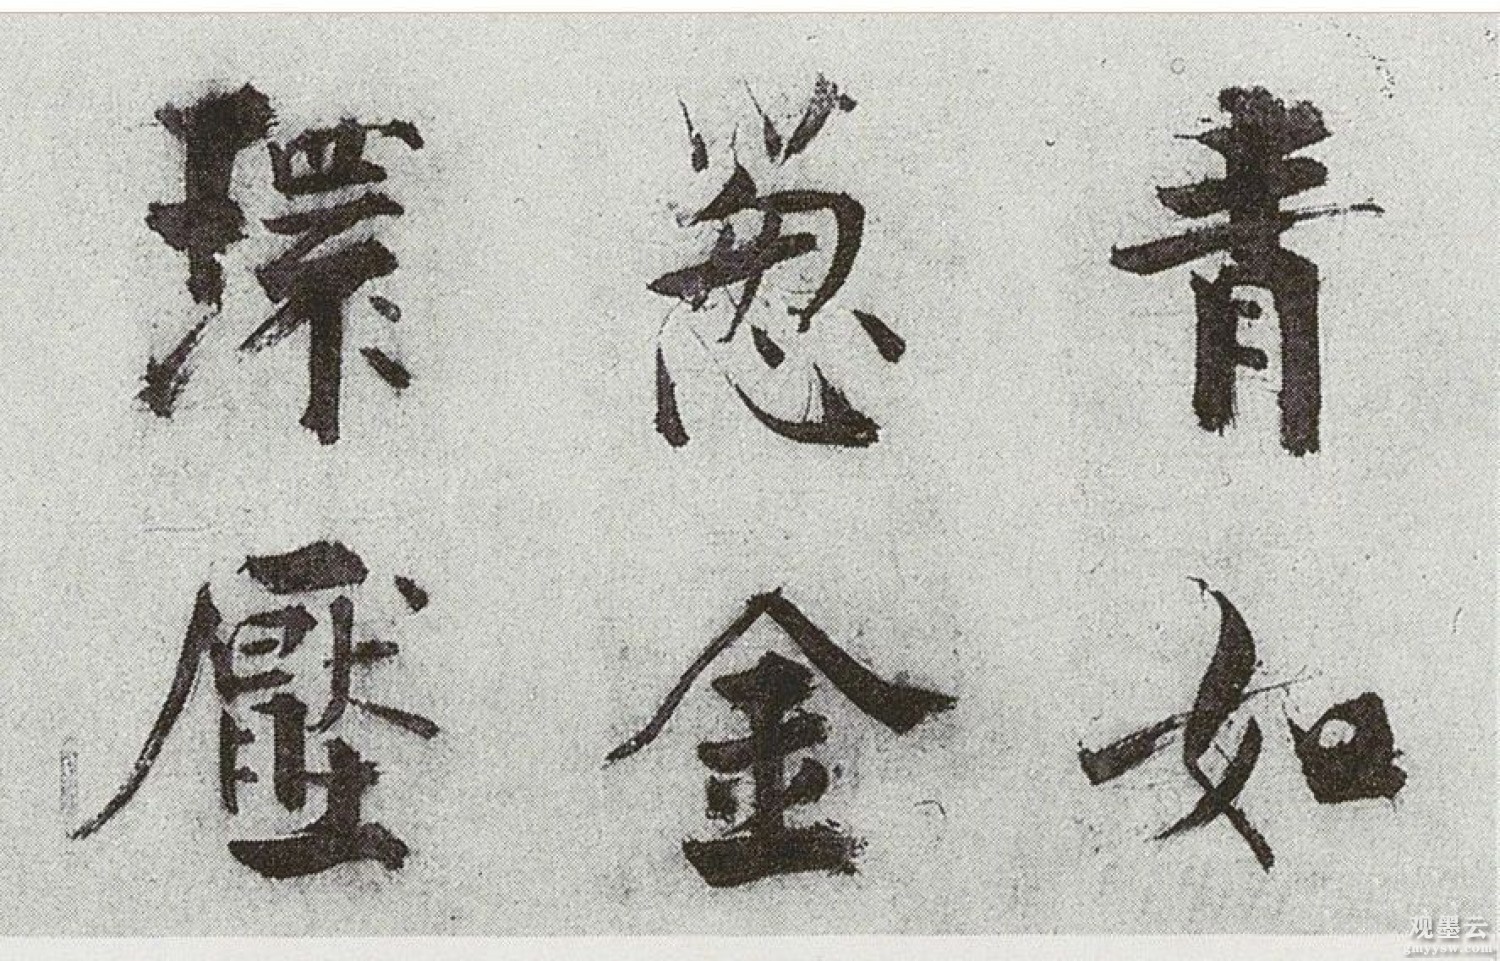 青如
葱金
環壓
观墨云
gmyysw.com